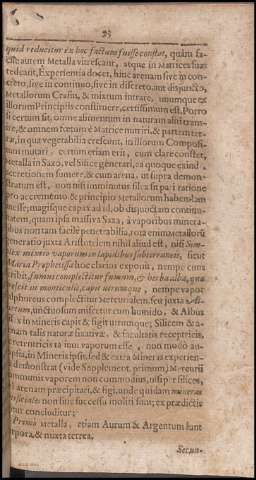 23
quid reducitur ex hoc factum fuisse constat, quam fa-
cile autem Metalla vitrescant, atque in Matrices suas
redeant, Experientia docet, hinc arenam sive in con-
creto, sive in continuo, sive in discreto, aut disjuncto,
Metallorum Crasin, & mistum intrare, unumque ex
illorum Principiis constituere, certissimum est. Porro
si certum sit, omne alimentum in naturam aliti transi-
re, & omnem foetum è Matrice nutriri, & partem terrae
in qua vegetabilia crescunt, in illorum Composi-
tum mutari certum etiam erit, cum clare constet,
Metalla in Saxo, vel Silice generari, ea quoque exinde
accretionem sumere, & cum arena, ut supra demon-
stratum est, non nisi imminutus silex sit pari ratione
pro accremento & principio Metallorum habendam
esse, magisque capax ad id, ob disjunctam continui-
tatem, quam ipsa massiva Saxa, à vaporibus minera-
libus non tam facile penetrabilia, tota enim metallorum
generatio juxta Aristotelem nihil aliud est, nisi
minera vaporum in lapidibus subterraneis, sicut
Maria Prophetissa hoc clarius exponit, nempe cum
scribit, fumus complectitur fumum, & herba alba, quae
crescit in monticulis, capit utrumque, nempe vapor
sulphureus complectitur Mercurialem, seu juxta A-
unctuosum miscetur cum humido, & Albus
in Mineris capit & figit utrumque; Silicem & a-
renam talis naturae fixativae, & facultatis receptricis,
& retentricis
ipsis, in Mineris ipsis, sed & extra Mineras experien-
demonstrat (vide Supplement. primum) Mercurii
communis vaporem non commodius, nisi per silices,
arenam praecipitari, & figi, unde quidam mineras
non sine successu moliti sunt; ex praedictis
concluditur:
Primò metalla, etiam Aurum & Argentum sunt
corpora, & mixta terrea.
Secun-